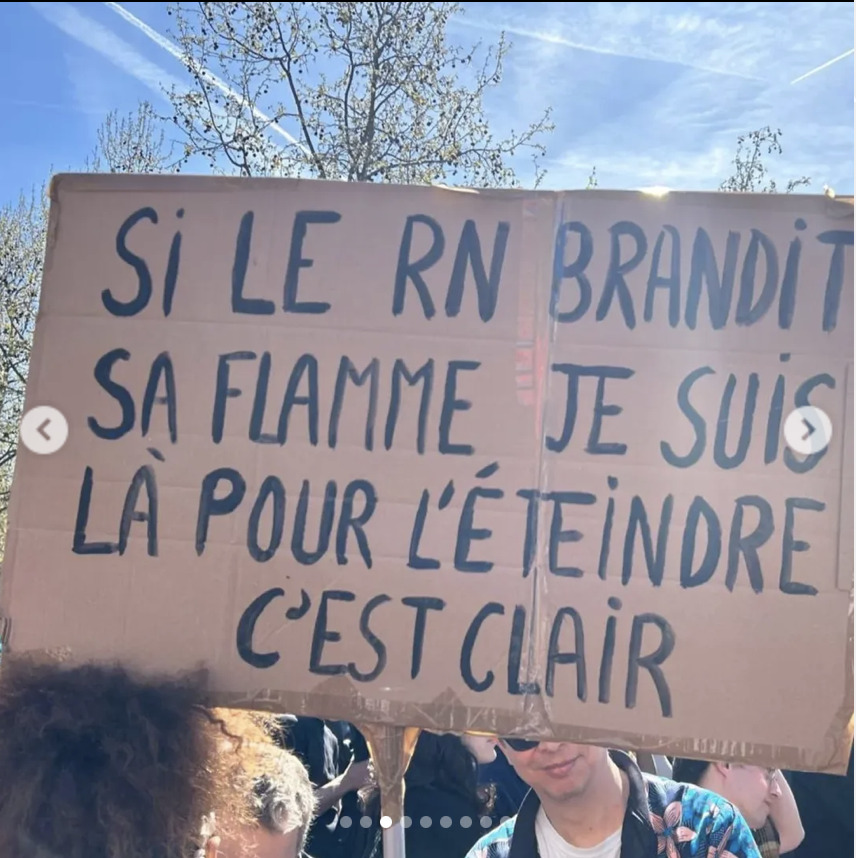 Si LE RN BRANDiT
SA FLAMME JE SUiS
LÀ POUR L'ÉTEiNDRE
C'EST CLAiR